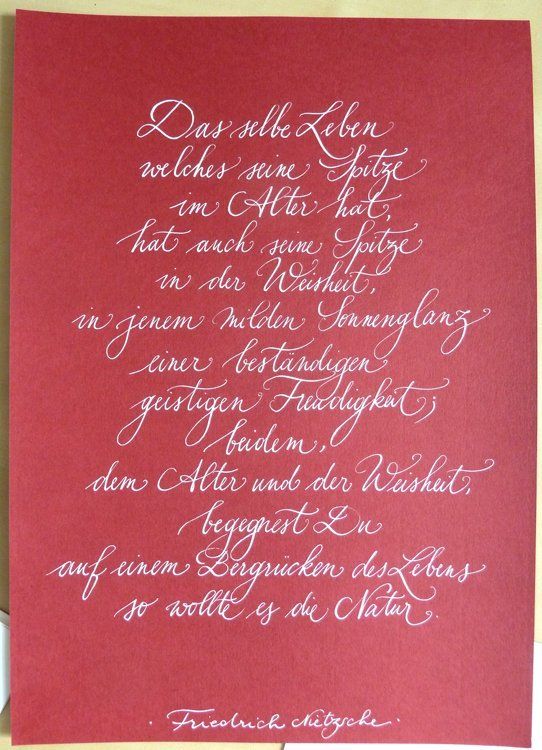 Das selbe Leben
welches seine Spitze
im Alter hat,
hat auch seine Spitze
in der Weisheit,
in jenem milden Sonnenglanz
einer beständigen
geistigen Freudigkeit;
beidem,
dem Alter und der Weisheit,
begegnest Du
auf einem Bergrücken des Lebens
so wollte es die Natur.
· Friedrich Nietzsche ·